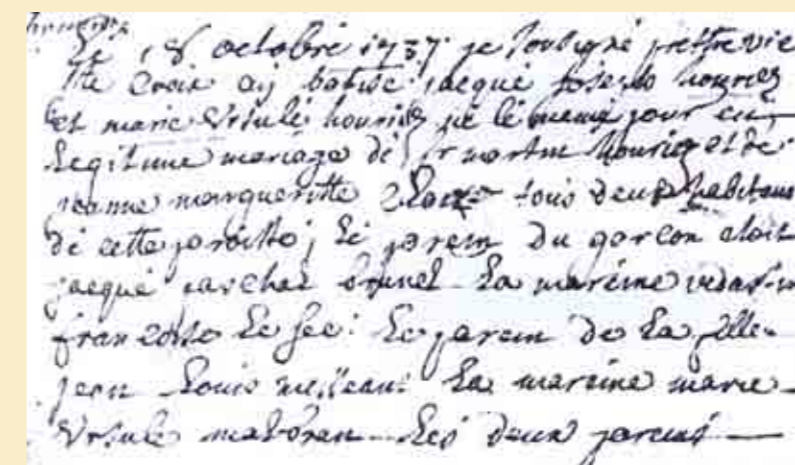 Le 18 octobre 1737 je sousigné prettre vic
Ste Croix aÿ batisé jacque joseph houriez
et marie Ursule houriez né le meme jour en
Legitime mariage de martin houriez et de
jeanne margueritte tous deux habitans
de cette paroisse; Le parein du garçon etoit
jacque paschal brunel La mareine
françoise Le fee: Le parein de La fille
jean Louis La mareine marie
Ursule Les deux pareins